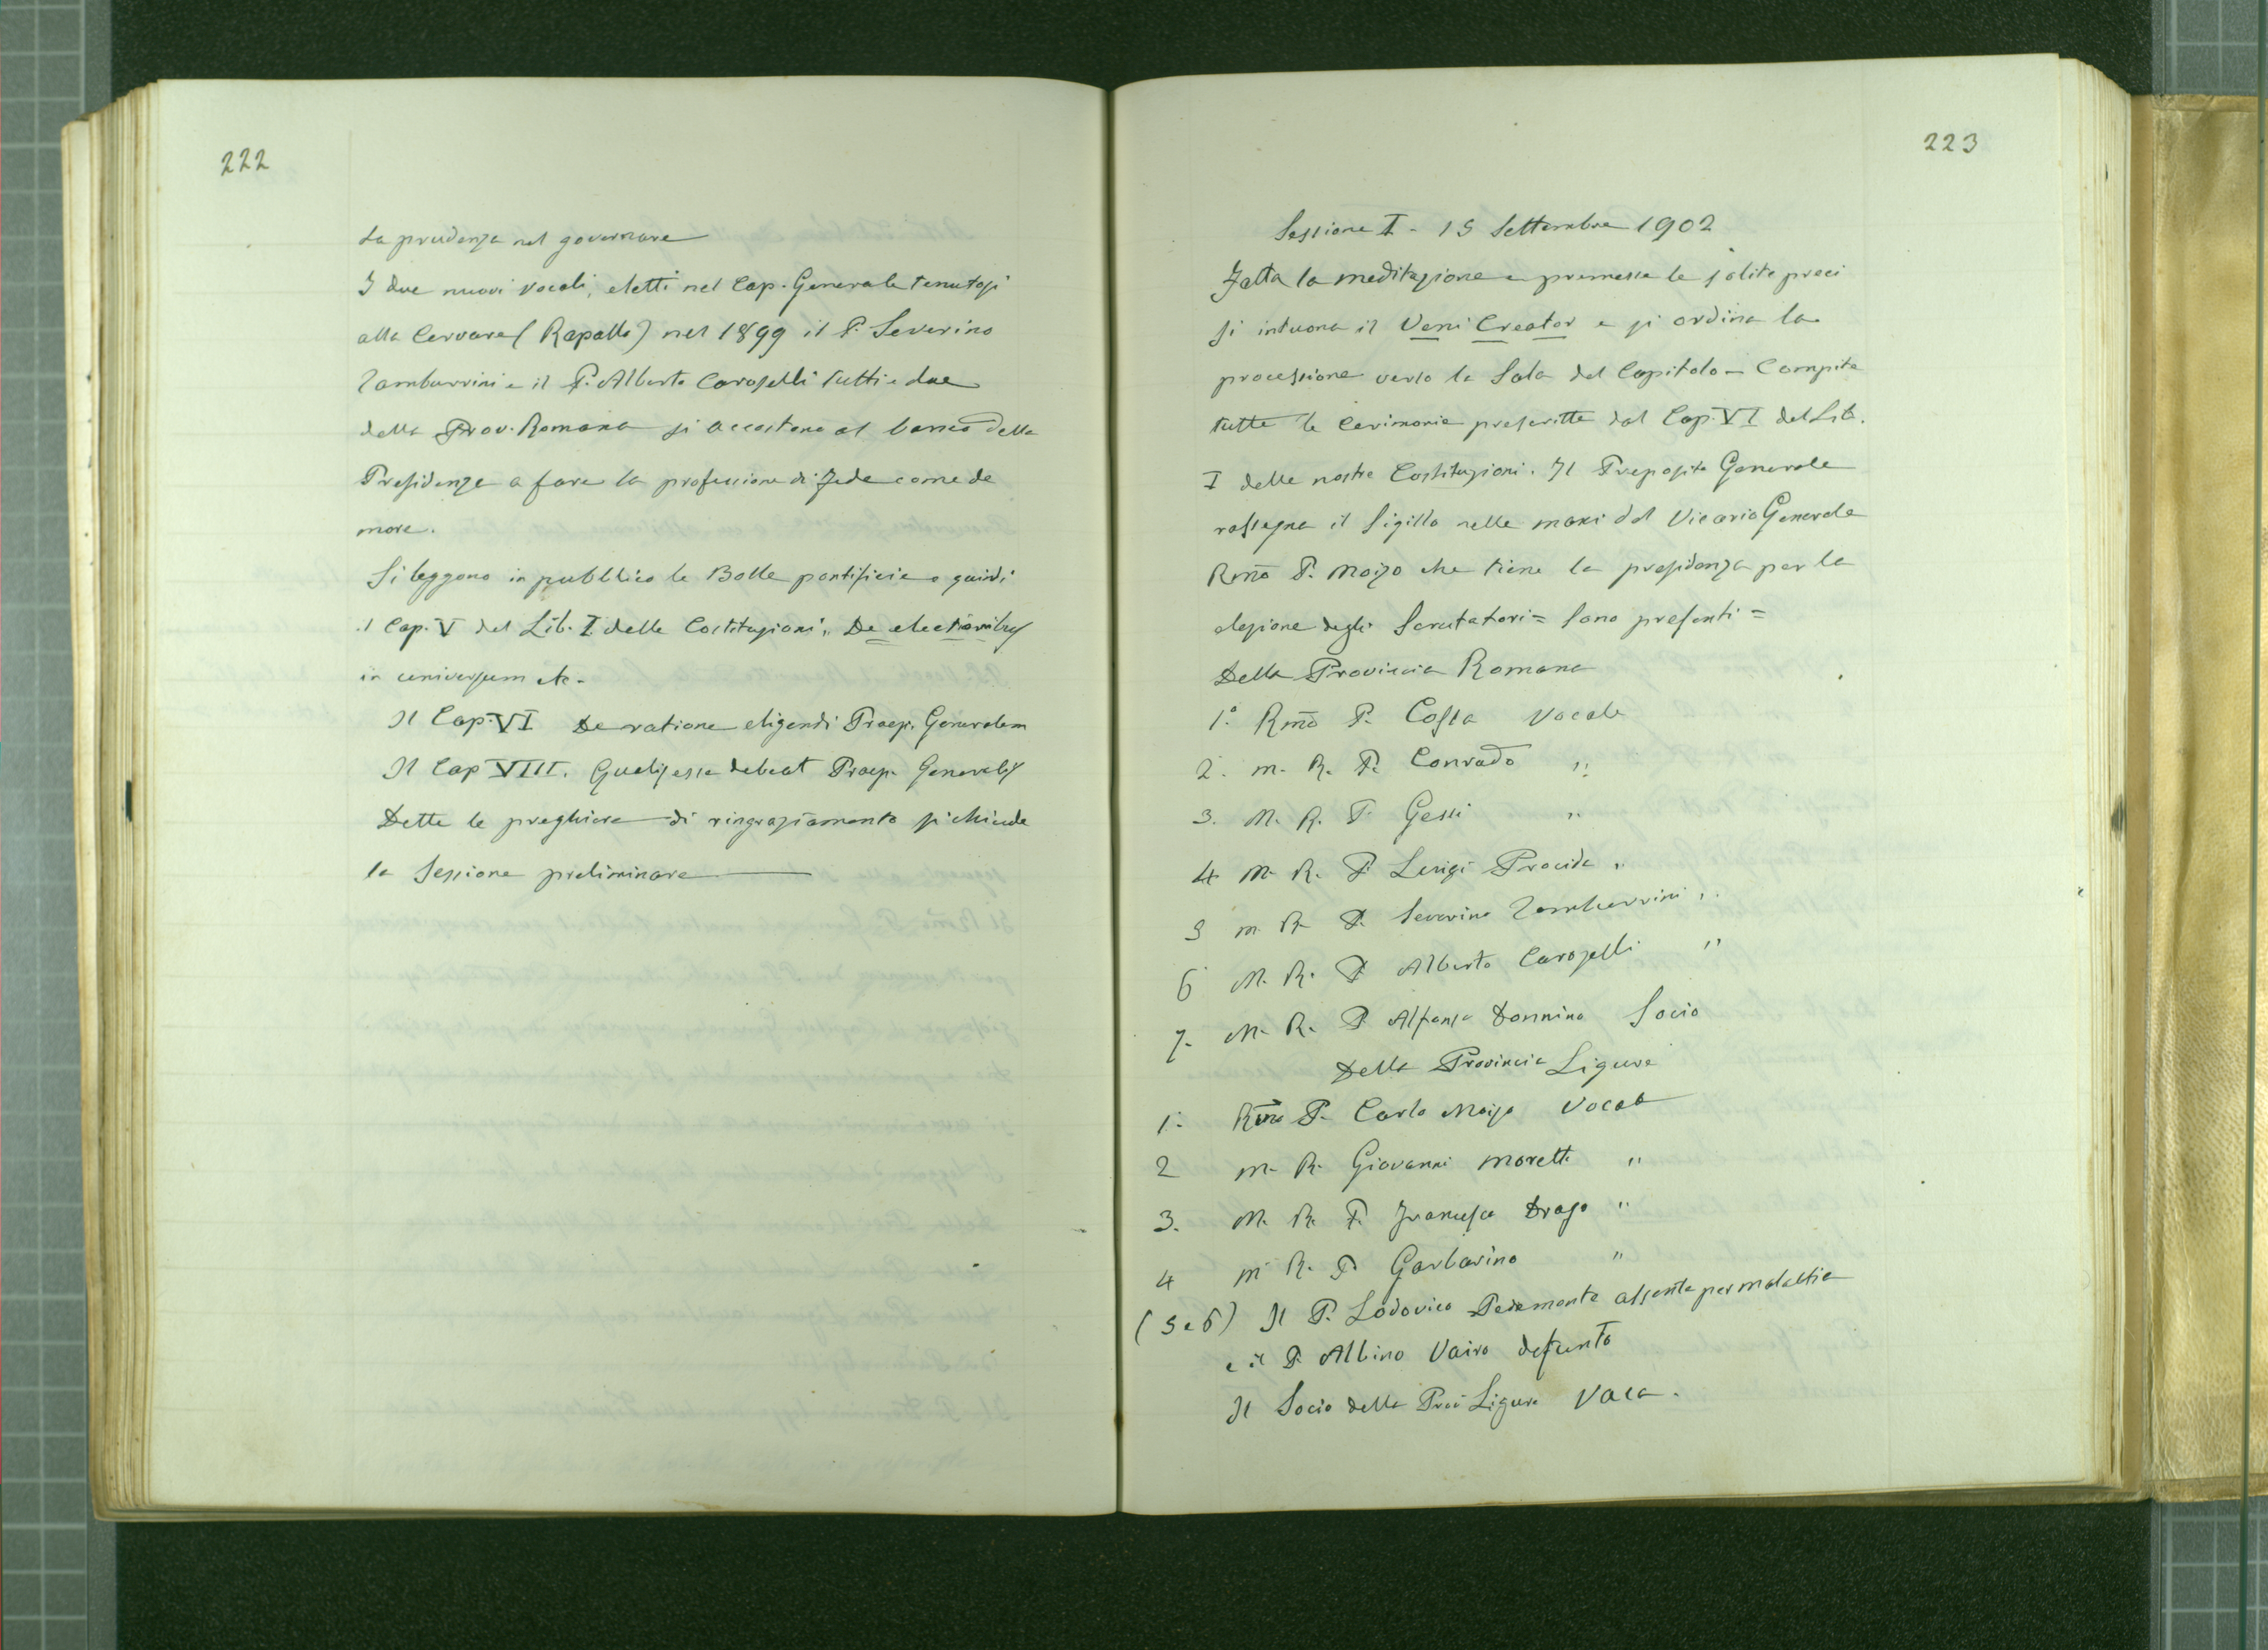 222
la prudenza nel governare
I due nuovi vocali, eletti nel Cap. Generale tenutosi
alla Cervara (Rapallo) nel 1899 il P. Severino
Tamburrini e il P. Alberto Caroselli tutti e due
della Prov. Romana si accostano al banco della
Presidenza a fare la professione di Fede come de
more.
Si leggono in pubblico le Bolle pontificie e quindi
il Cap. V del Lib. I delle Costituzioni, De electionibus
in universum etc.
Il Cap. VI De ratione eligendi Praep. Generalem
Il Cap VIII. Qualis esse debeat Praep. Generalis
Dette le preghiere di ringraziamento si chiude
la Sessione preliminare
223
Sessione I - 15 Settembre 1902
Fatta la meditazione e premesse le solite preci
si intuona il Veni Creator e si ordina la
processione verso la Sala del Capitolo - Compite
tutte le cerimonie prescritte dal Cap. VI del Lib.
I delle nostre Costituzioni. Il Preposito Generale
rassegna il Sigillo nelle mani del Vicario Generale
Rmo P. Moizo che tiene la presidenza per la
elezione degli Scrutatori = Sono presenti =
Della Provincia Romana
1.° Rmo P. Costa Vocale
2. M. R. P. Conrado "
3. M. R. P. Gessi "
4 M. R. P. Luigi Procida "
5 M. R. P. Severino Tamburrini "
6 M. R. P. Alberto Caroselli "
7. M. R. P. Alfonso Donnino Socio
Della Provincia Ligure
1. Rmo P. Carlo Moizo Vocale
2 M. R. Giovanni Moretti "
3. M. R. P. Francesco Drago "
4 M R. P. Garbarino "
(5 e 6) Il P. Lodovico Pedemonte assente per malattia
e il P. Albino Vairo defunto
Il Socio della Prov Ligure Vaca.